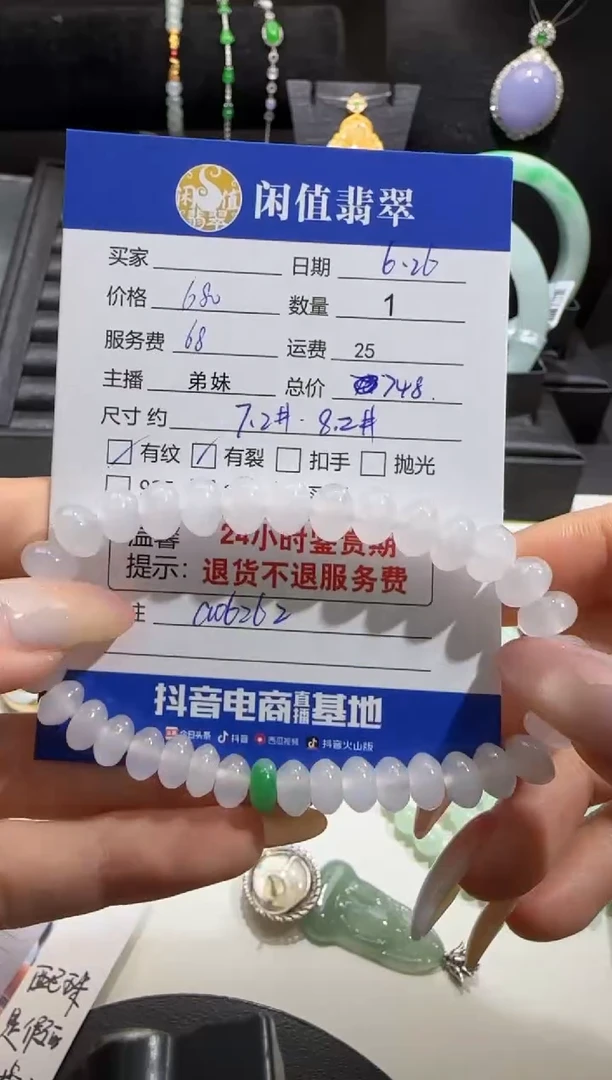 闲值翡翠
买家 日期 6.26
价格 680 数量 1
服务费 68 运费 25
主播 弟妹 总价 748.
尺寸 约 7.2# - 8.2#
有纹 有裂 扣手 抛光
温馨 24小时鉴赏期
提示: 退货不退服务费
抖音电商直播基地
今日头条 抖音 西瓜视频 抖音火山版
配珠
是假